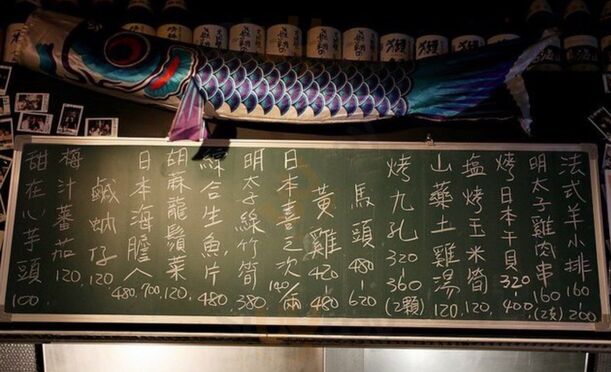 法式羊小排 160-200
明太子雞肉串 160 (2支)
烤日本干貝 320 400
塩烤玉米筍 120
山藥土雞湯 120
烤九孔 320-360 (2顆)
馬頭 480-620
黃雞 420-480
日本喜之次 120/兩
明太子綠竹筍 380
綜合生魚片 480
胡蔴龍鬚菜 120.
日本海膽 480. 700
鹹蚋仔 120.
梅汁蕃茄 120
甜在心芋頭 100.